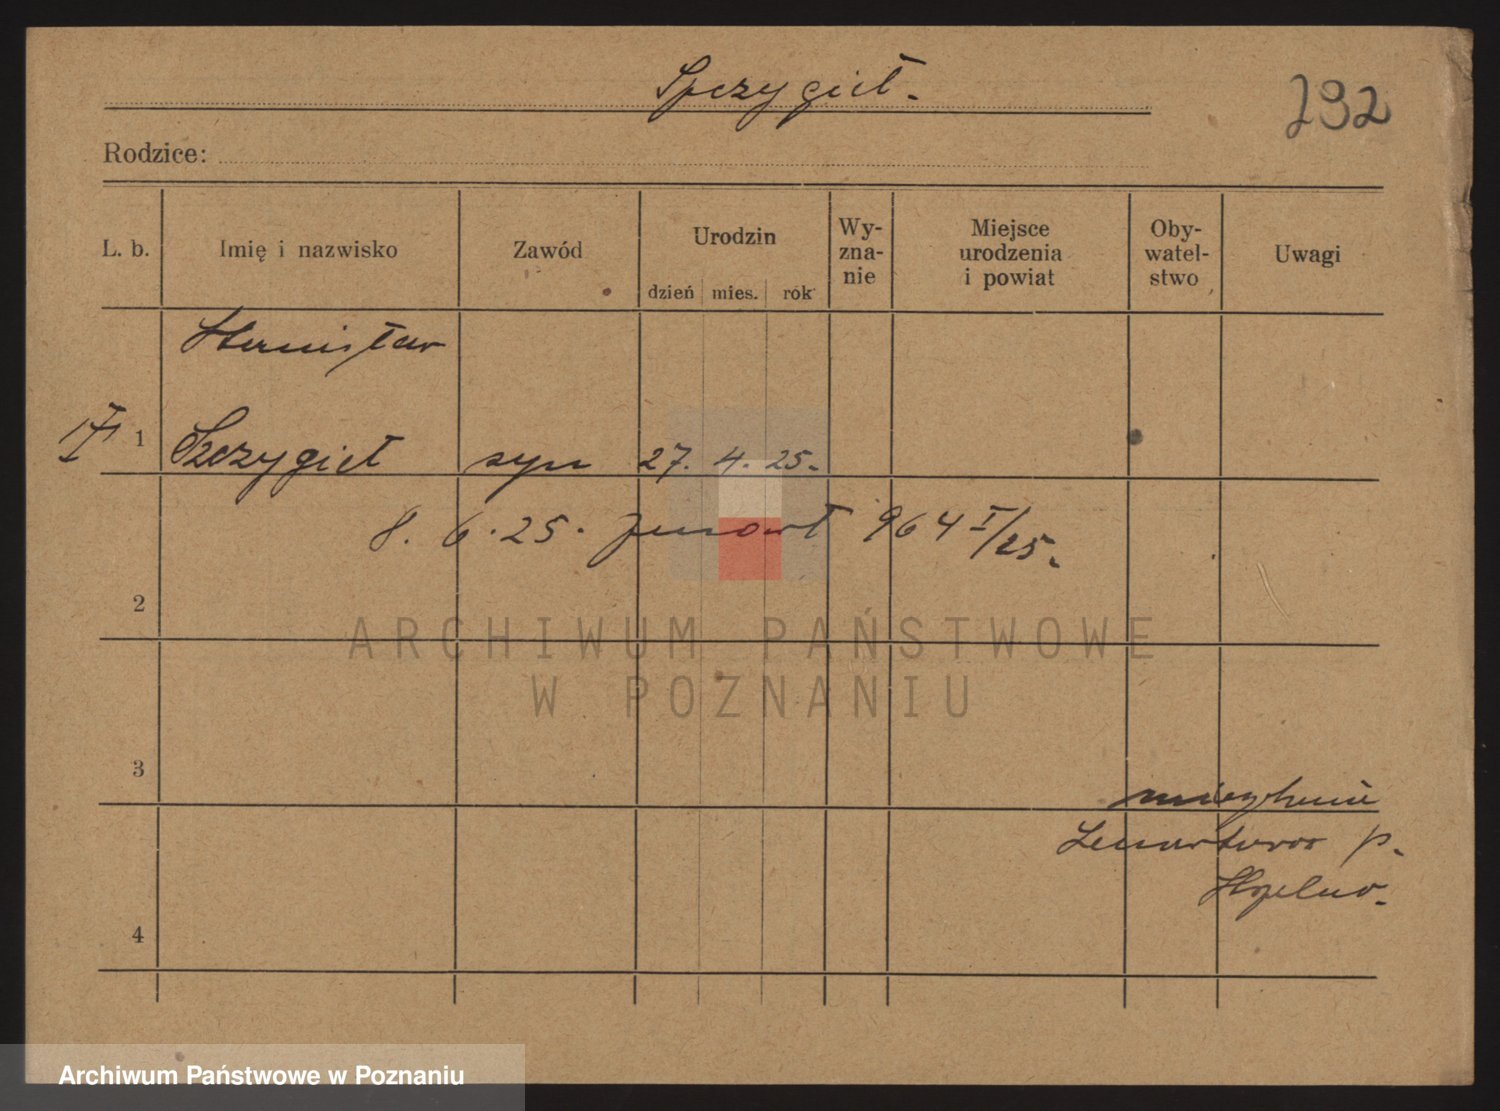 Szczygieł.
292
Rodzice:
L. b. Imię i nazwisko Zawód Urodzin dzień mies. rok Wy-zna-nie Miejsce urodzenia i powiat Oby-watel-stwo Uwagi
Stanisław
1 Szczygieł syn 27. 4. 25.
8. 6. 25. zmarł 964 I/25.
2
ARCHIWUM PAŃSTWOWE
W POZNANIU
3
4
Archiwum Państwowe w Poznaniu